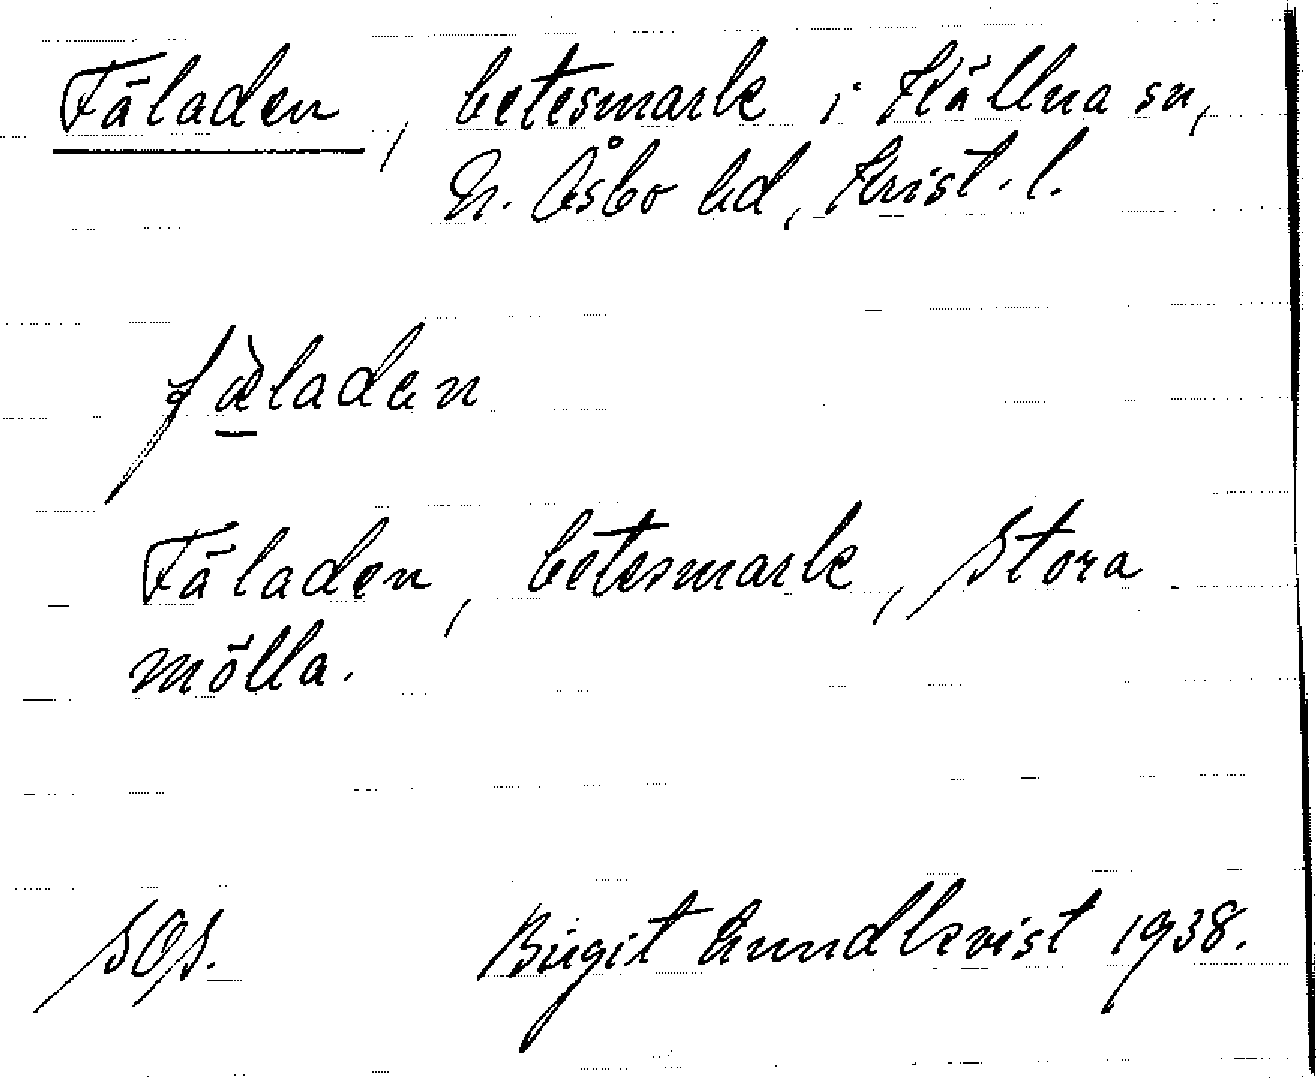 Fäladen, betesmark i Källna sn,
N. Åsbo hd, Krist. l.
fæ̀laden
Fäladen, betesmark, Stora
mölla.
SOS. Birgit Lundkvist 1938.